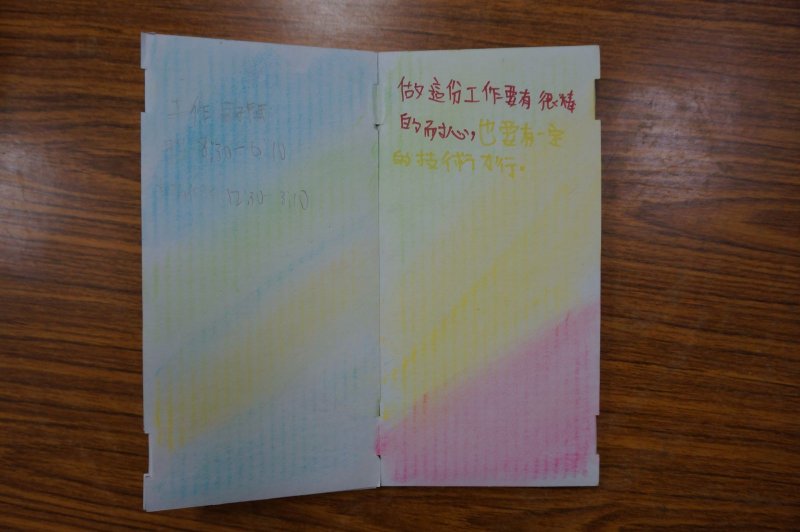 工作時間
8:30-5:10
12:30-3:10
做這份工作要有很棒
的耐心,也要有一定
的技術才行。